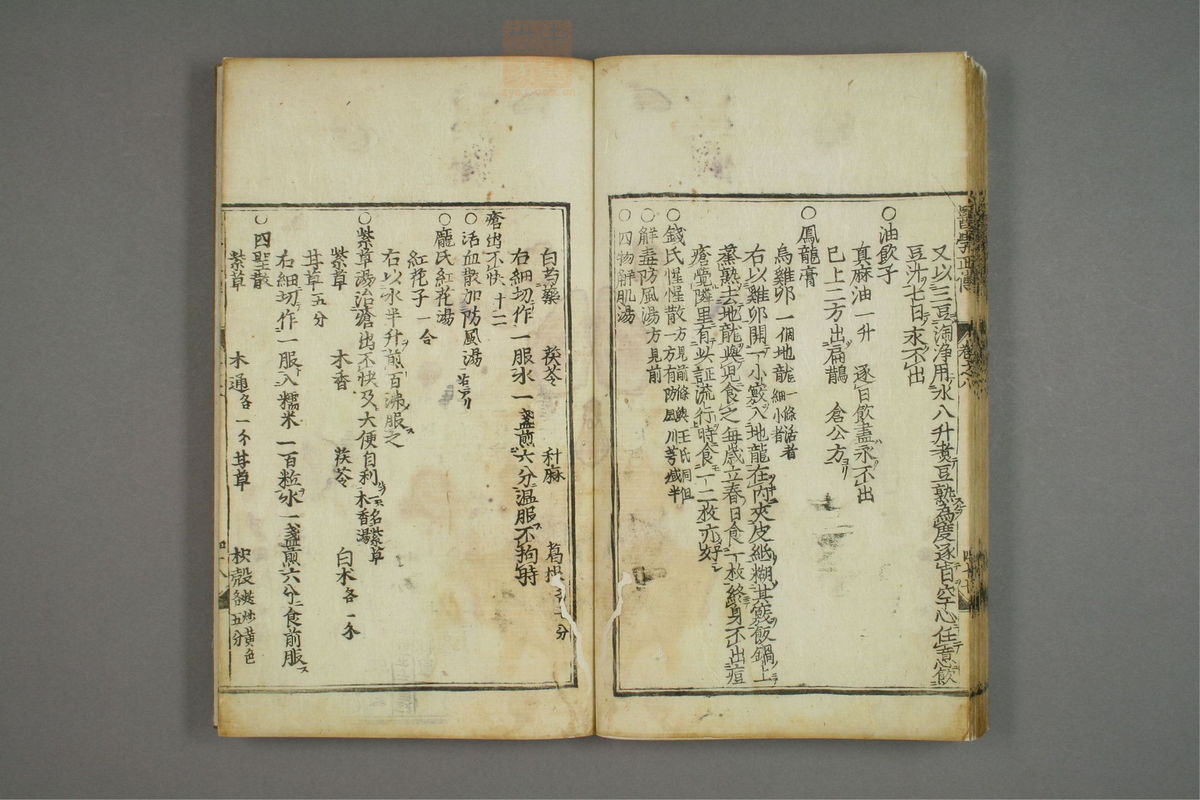 又以三豆淘淨用水八升煮豆熟為度逐日空心任意飲
豆汁七日永不出
○油飲子
真麻油一升 逐日飲盡永不出
已上二方出扁鵲 倉公方
○鳳龍膏
烏雞卵一個地龍一條活者細小者
右以雞卵開一小竅入地龍在內夾皮紙糊其竅飯鍋上
蒸熟去地龍與兒食之每歲立春日食一枚終身不出痘
瘡覺隣里有此証流行時食一二枚亦好
○錢氏惺惺散方見前條與王氏同但一方有防風川芎減半
○解毒防風湯方見前
○四物解肌湯
白芍藥 茯苓 升麻 葛根各一分
右細切作一服水一盞煎六分溫服不拘時
瘡出不快十二
○活血散加防風湯
○龐氏紅花湯
紅花子一合
右以水半升煎百沸服之
○紫草湯治瘡出不快及大便自利一名紫草木香湯
紫草 木香 茯苓 白朮各一分
甘草五分
右細切作一服入糯米一百粒水一盞煎六分食前服
○四聖散
紫草 木通各一分甘草 枳殼麸炒黃色各五分
醫學正傳 卷之八